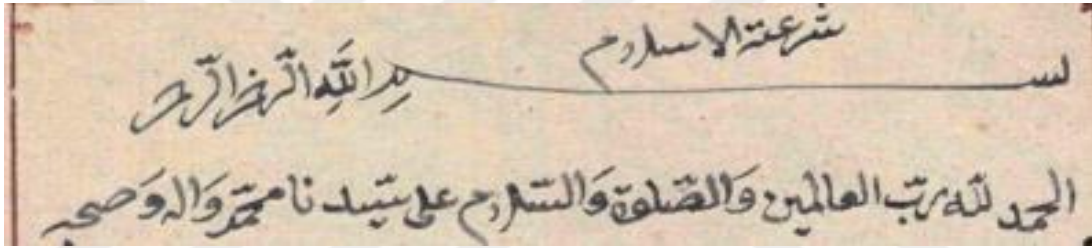 شرعة الاسلام
بسم الله الرحمن الرحيم
الحمد لله رب العالمين وَالصّلوة وَالسّلام على سيّدنا محمّد وَاله وَصحبه